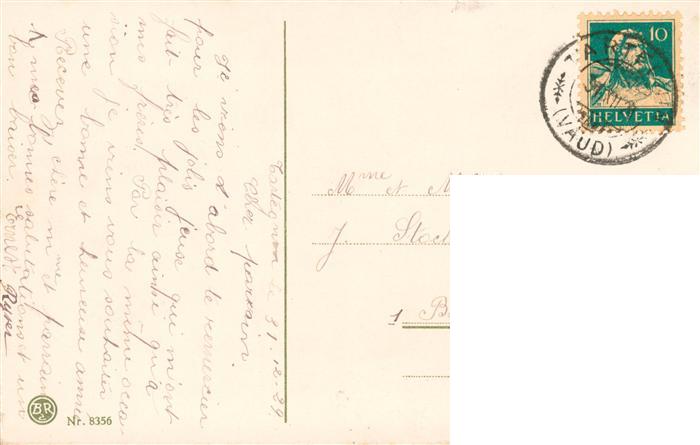 Tartegnin le 31.12.29
Cher parrain.
Je viens d'abord te remercier
pour les jolis jeux qui m'ont
fait très plaisir ainsi qu'à
mes frères. Par la même occa
sion je viens vous souhaiter
une bonne et heureuse année
Recevez chère mme et parrain
mes bonnes salutations et un
bon baiser.
Ernest Ryser
Mme et M
J. Stoc
1 B
10
HELVETIA
(VAUD)
BR
Nr. 8356